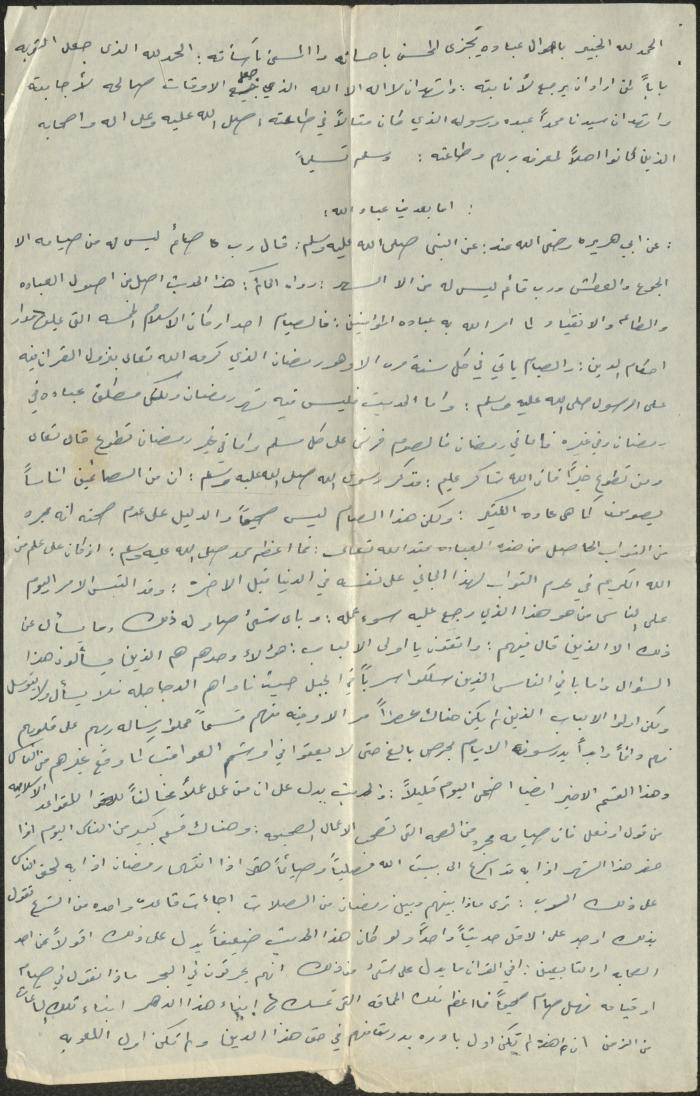 الحمد لله الخبير باحوال عباده يجزى المحسن باحسانه والمسئ باسأته : الحمد لله الذى جعل التوبه
باباً لمن اراد ان يرجع لأنابته : واشهد ان لا اله الا الله الذي جميع الاوقات صالحه لأجابته
واشهد ان سيدنا محمداً عبده ورسوله الذي كان مثالاً في طاعته : صلى الله عليه وعلى اله واصحابه
الذين كانوا اهلاً لمعرفة ربهم وطاعته : وسلم تسليماً
: اما بعد يا عباد الله :
: عن ابي هريره رضى الله عنه : عن النبى صلى الله عليه وسلم : قال رب صائم ليس له من صيامه الا
الجوع والعطش ورب قائم ليس له من الا السهر : رواه الحاكم : هذا الحديث اصل من اصول العباده
والطاعه والانقياد لما امر الله به عباده المؤمنين : فالصيام احد اركان الاسلام الخمسه التى عليها مدار
احكام الدين : والصيام ياتي في كل سنة مره الا وهو رمضان الذي كرمه الله تعالى بنزول القران فيه
على الرسول صلى الله عليه وسلم : واما الحديث فليس فيه شهر رمضان ولكن مطلق عباده في
رمضان وفي غيره فاما في رمضان فالصوم فرض على كل مسلم واما في غير رمضان تطوع قال تعالى
ومن تطوع خيراً فان الله شاكر عليم : فذكر رسول الله صلى الله عليه وسلم : ان من الصائمين اناساً
يصومون كما هى عادة الكثير : ولكن هذا الصيام ليس صحيحاً والدليل على عدم صحته انه مجرد
من الثواب الحاصل من هذه العباده عند الله تعالى : فما اعظم محمد صلى الله عليه وسلم : اذ كان على علم من
الله الكريم في عدم الثواب لهذا الجاني على نفسه في الدنيا قبل الاخرة : وقد التبس الامر اليوم
على الناس من هو هذا الذي رجع عليه سوء عمله : وباى شئ صار له ذلك وما يسأل عن
ذلك الا الذين قال فيهم : واتقون يا اولى الالباب : هؤلاء وحدهم هم الذين يسألون هذا
السؤال واما باقي الناس الذين سلكوا سرباً في الجبل حيث ناداهم الدجاجله فلا يسأل ولا يتوسل
ولكن اولوا الالباب الذين لم يكن هناك عصراً من الا وفيه منهم قسماً حملوا رسالة ربهم على قلوبهم
فهم دائماً وابداً يدرسون الايام بحرص بالغ حتى لا يقعوا في اوشم العواقب كما وقع غيرهم من الناس
وهذا القسم الاخير ايضا اضحى اليوم قليلاً : والحديث يدل على ان من عمل عملاً مخالفاً للقواعد الاسلاميه
من قول او فعل فان صيامه مجرد من الصحه التى تضحى الاعمال الصحيحه : وهناك قسم كبير من الناس اليوم اذا
حضر هذا الشهر اذا به قد اسرع الى بيت الله مصلياً وصائماً حتى اذا انتهى رمضان اذا به
على ذلك : ترى ماذا بينهم وبين رمضان من الصلات اجاءت قاعدة واحده من الشرع تقول
بذلك او جد على الاقل حديثاً واحداً ولو كان هذا الحديث ضعيفاً يدل على ذلك او قولاً عن احد
الصحابه او التابعين : افي القران ما يدل على شئ من ذلك انهم يحرقون في البحر ماذا نقول في صيام
او قيامه فهل صيام صحيحاً فما اعظم تلك الحماقه التى تمسك بها ابناء هذا الدهر ابناء تلك الساعات
من الزمن ان هذه لم تكن اول بادره بدرت منهم في حق هذا الدين ولم تكن اول